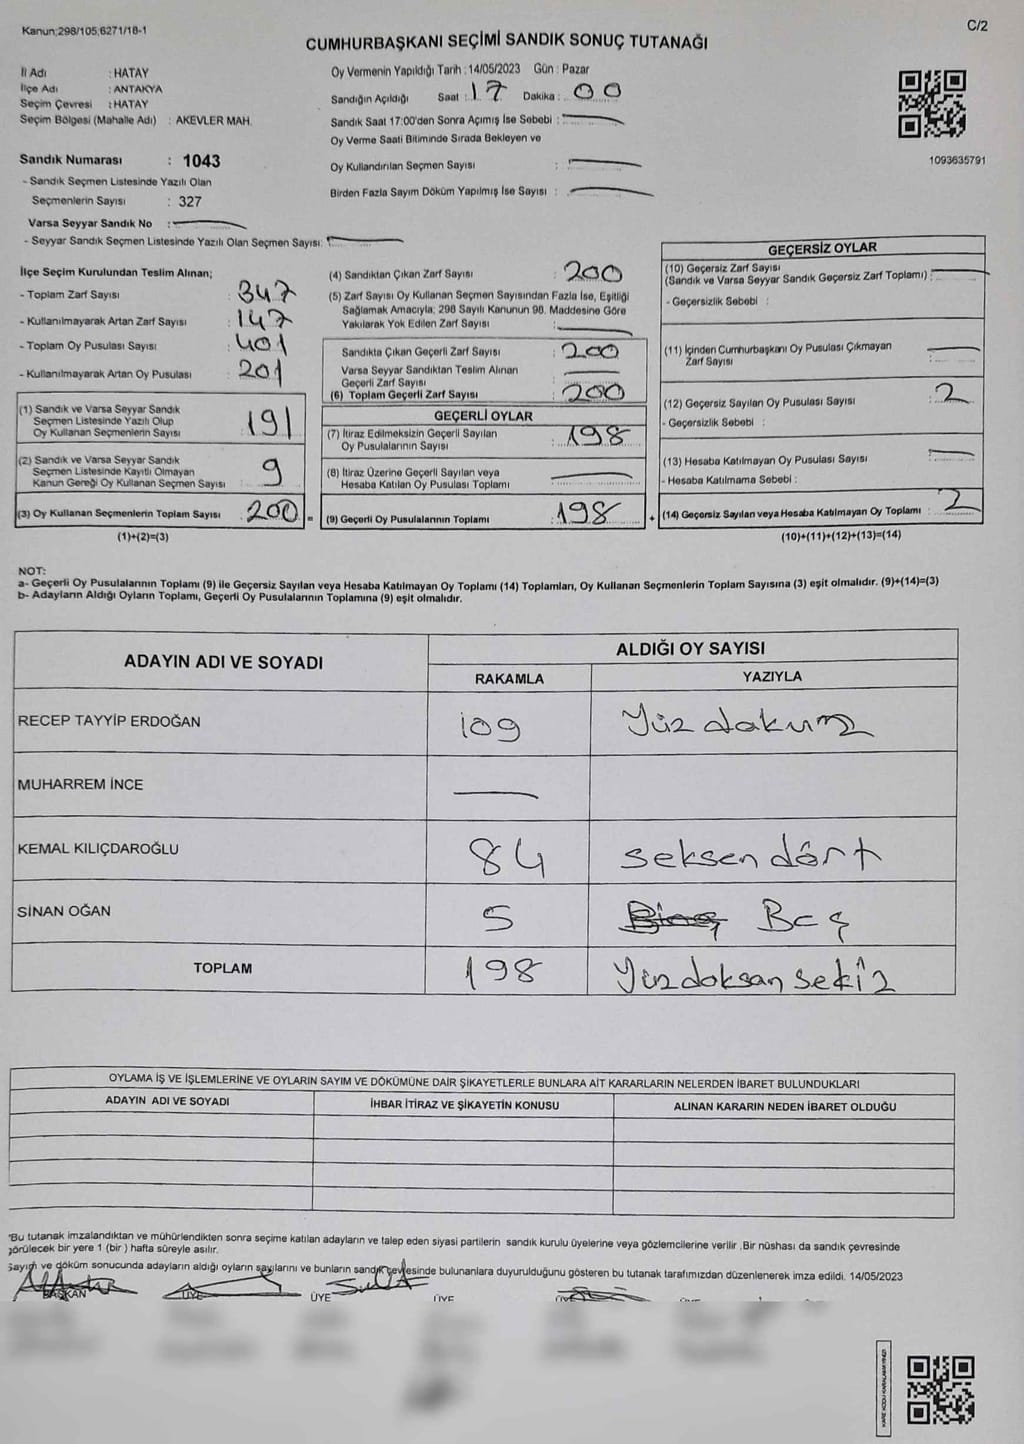 Kanun;298/105,6271/18-1
C/2
CUMHURBAŞKANI SEÇİMİ SANDIK SONUÇ TUTANAĞI
İl Adı : HATAY
İlçe Adı : ANTAKYA
Seçim Çevresi : HATAY
Seçim Bölgesi (Mahalle Adı) : AKEVLER MAH.
Oy Vermenin Yapıldığı Tarih : 14/05/2023 Gün : Pazar
Sandığın Açıldığı Saat : 17 Dakika : 00
Sandık Saat 17:00'den Sonra Açımış İse Sebebi :
Oy Verme Saati Bitiminde Sırada Bekleyen ve
Oy Kullandırılan Seçmen Sayısı :
Birden Fazla Sayım Döküm Yapılmış İse Sayısı :
1093635791
Sandık Numarası : 1043
- Sandık Seçmen Listesinde Yazılı Olan
Seçmenlerin Sayısı : 327
Varsa Seyyar Sandık No :
- Seyyar Sandık Seçmen Listesinde Yazılı Olan Seçmen Sayısı:
İlçe Seçim Kurulundan Teslim Alınan;
- Toplam Zarf Sayısı : 347
- Kullanılmayarak Artan Zarf Sayısı : 147
- Toplam Oy Pusulası Sayısı : 401
- Kullanılmayarak Artan Oy Pusulası : 201
(1) Sandık ve Varsa Seyyar Sandık
Seçmen Listesinde Yazılı Olup
Oy Kullanan Seçmenlerin Sayısı : 191
(2) Sandık ve Varsa Seyyar Sandık
Seçmen Listesinde Kayıtlı Olmayan
Kanun Gereği Oy Kullanan Seçmen Sayısı : 9
(3) Oy Kullanan Seçmenlerin Toplam Sayısı : 200 =
(1)+(2)=(3)
(4) Sandıktan Çıkan Zarf Sayısı : 200
(5) Zarf Sayısı Oy Kullanan Seçmen Sayısından Fazla İse, Eşitliği
Sağlamak Amacıyla; 298 Sayılı Kanunun 98. Maddesine Göre
Yakılarak Yok Edilen Zarf Sayısı :
Sandıkta Çıkan Geçerli Zarf Sayısı : 200
Varsa Seyyar Sandıktan Teslim Alınan
Geçerli Zarf Sayısı :
(6) Toplam Geçerli Zarf Sayısı : 200
GEÇERLİ OYLAR
(7) İtiraz Edilmeksizin Geçerli Sayılan
Oy Pusulalarının Sayısı : 198
(8) İtiraz Üzerine Geçerli Sayılan veya
Hesaba Katılan Oy Pusulası Toplamı :
(9) Geçerli Oy Pusulalarının Toplamı : 198 +
GEÇERSİZ OYLAR
(10) Geçersiz Zarf Sayısı
(Sandık ve Varsa Seyyar Sandık Geçersiz Zarf Toplamı) :
- Geçersizlik Sebebi :
(11) İçinden Cumhurbaşkanı Oy Pusulası Çıkmayan
Zarf Sayısı :
(12) Geçersiz Sayılan Oy Pusulası Sayısı : 2
- Geçersizlik Sebebi :
(13) Hesaba Katılmayan Oy Pusulası Sayısı :
- Hesaba Katılmama Sebebi :
(14) Geçersiz Sayılan veya Hesaba Katılmayan Oy Toplamı : 2
(10)+(11)+(12)+(13)=(14)
NOT:
a- Geçerli Oy Pusulalarının Toplamı (9) ile Geçersiz Sayılan veya Hesaba Katılmayan Oy Toplamı (14) Toplamları, Oy Kullanan Seçmenlerin Toplam Sayısına (3) eşit olmalıdır. (9)+(14)=(3)
b- Adayların Aldığı Oyların Toplamı, Geçerli Oy Pusulalarının Toplamına (9) eşit olmalıdır.
ADAYIN ADI VE SOYADI
ALDIĞI OY SAYISI
RAKAMLA YAZIYLA
RECEP TAYYİP ERDOĞAN 109 Yüz dokuz
MUHARREM İNCE
KEMAL KILIÇDAROĞLU 84 seksen dört
SİNAN OĞAN 5 Beş
TOPLAM 198 Yüzdoksan sekiz
OYLAMA İŞ VE İŞLEMLERİNE VE OYLARIN SAYIM VE DÖKÜMÜNE DAİR ŞİKAYETLERLE BUNLARA AİT KARARLARIN NELERDEN İBARET BULUNDUKLARI
ADAYIN ADI VE SOYADI İHBAR İTİRAZ VE ŞİKAYETİN KONUSU ALINAN KARARIN NEDEN İBARET OLDUĞU
*Bu tutanak imzalandıktan ve mühürlendikten sonra seçime katılan adayların ve talep eden siyasi partilerin sandık kurulu üyelerine veya gözlemcilerine verilir .Bir nüshası da sandık çevresinde
görülecek bir yere 1 (bir ) hafta süreyle asılır.
Sayım ve döküm sonucunda adayların aldığı oyların sayılarını ve bunların sandık çevresinde bulunanlara duyurulduğunu gösteren bu tutanak tarafımızdan düzenlenerek imza edildi. 14/05/2023
BAŞKAN ÜYE ÜYE ÜYE